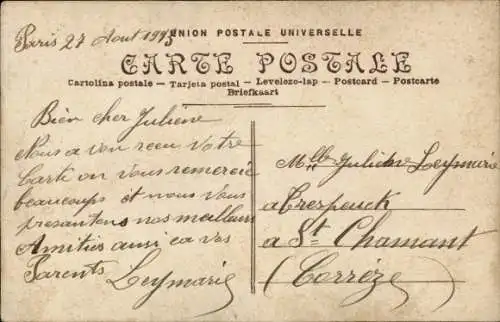 Paris 27 Aout 1905
UNION POSTALE UNIVERSELLE
CARTE POSTALE
Cartolina postale — Tarjeta postal — Levelezo-lap — Postcard — Postcarte
Briefkaart
Bien cher Juliene
Nous a von recu Votre
Carte on Vous remercie
beaucoups et nous Vous
presantons nos meilleurs
Amitiés ausi ca vos
Parents Leymarie
Melle Juliene Leymarie
a
a St Chamant
(Corrèze)